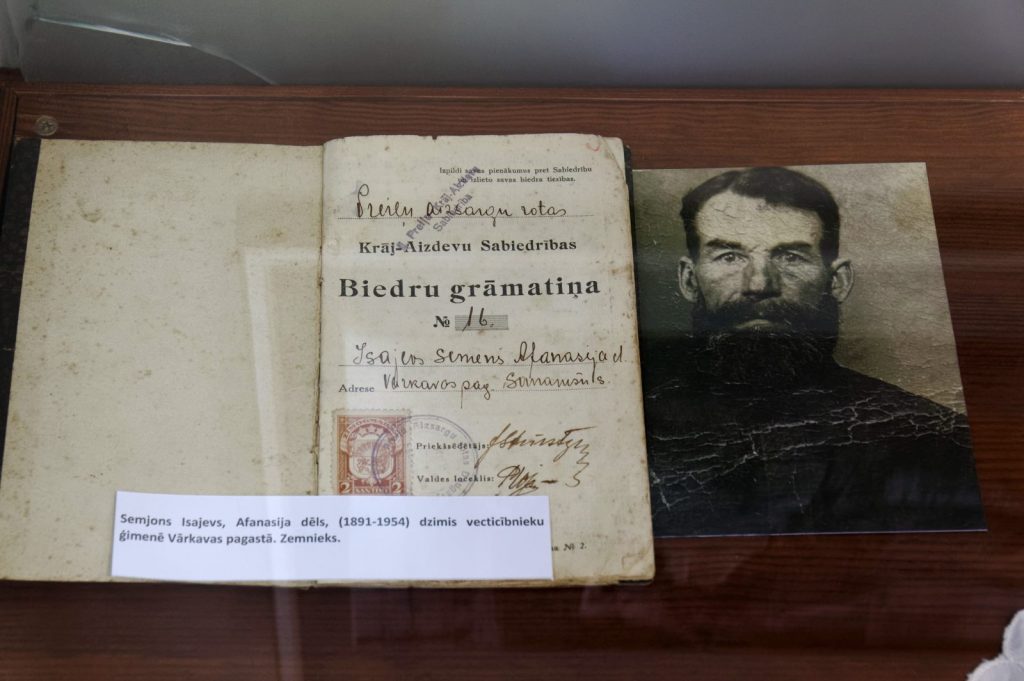 Izpildi savas pienākumus pret Sabiedrību
izlieto savas biedra tiesības.
Preiļu aizsargu rotas
Krāj-Aizdevu Sabiedrības
Biedru grāmatiņa
№ 16.
Isajevs Semens Afanasija d.
Adrese Vārkavas pag.
Aizsargu
Priekšsēdētājs:
Valdes loceklis:
2
Semjons Isajevs, Afanasija dēls, (1891-1954) dzimis vecticībnieku
ģimenē Vārkavas pagastā. Zemnieks.
№ 2.